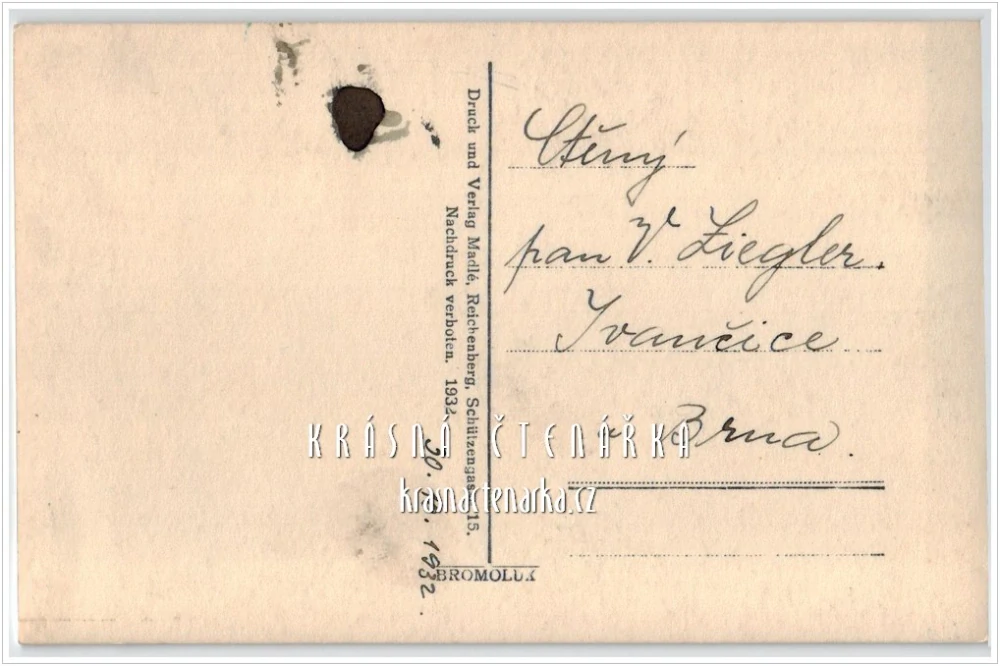 Ctěný
pan V. Ziegler.
Ivančice
u Brna.
Druck und Verlag Madlé, Reichenberg, Schützengasse 15.
Nachdruck verboten. 1932
1932.
BROMOLUX
KRÁSNÁ ČTENÁŘKA
krasnactenarka.cz